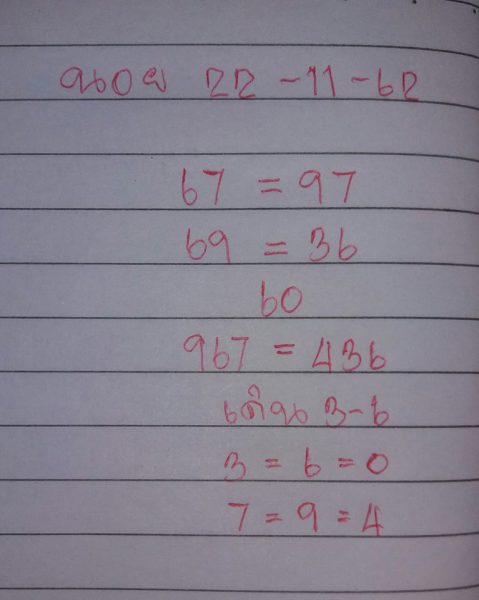 นอย 22 -11-62
67 = 97
69 = 36
60
967 = 436
เด่น 3-6
3 = 6 = 0
7 = 9 = 4